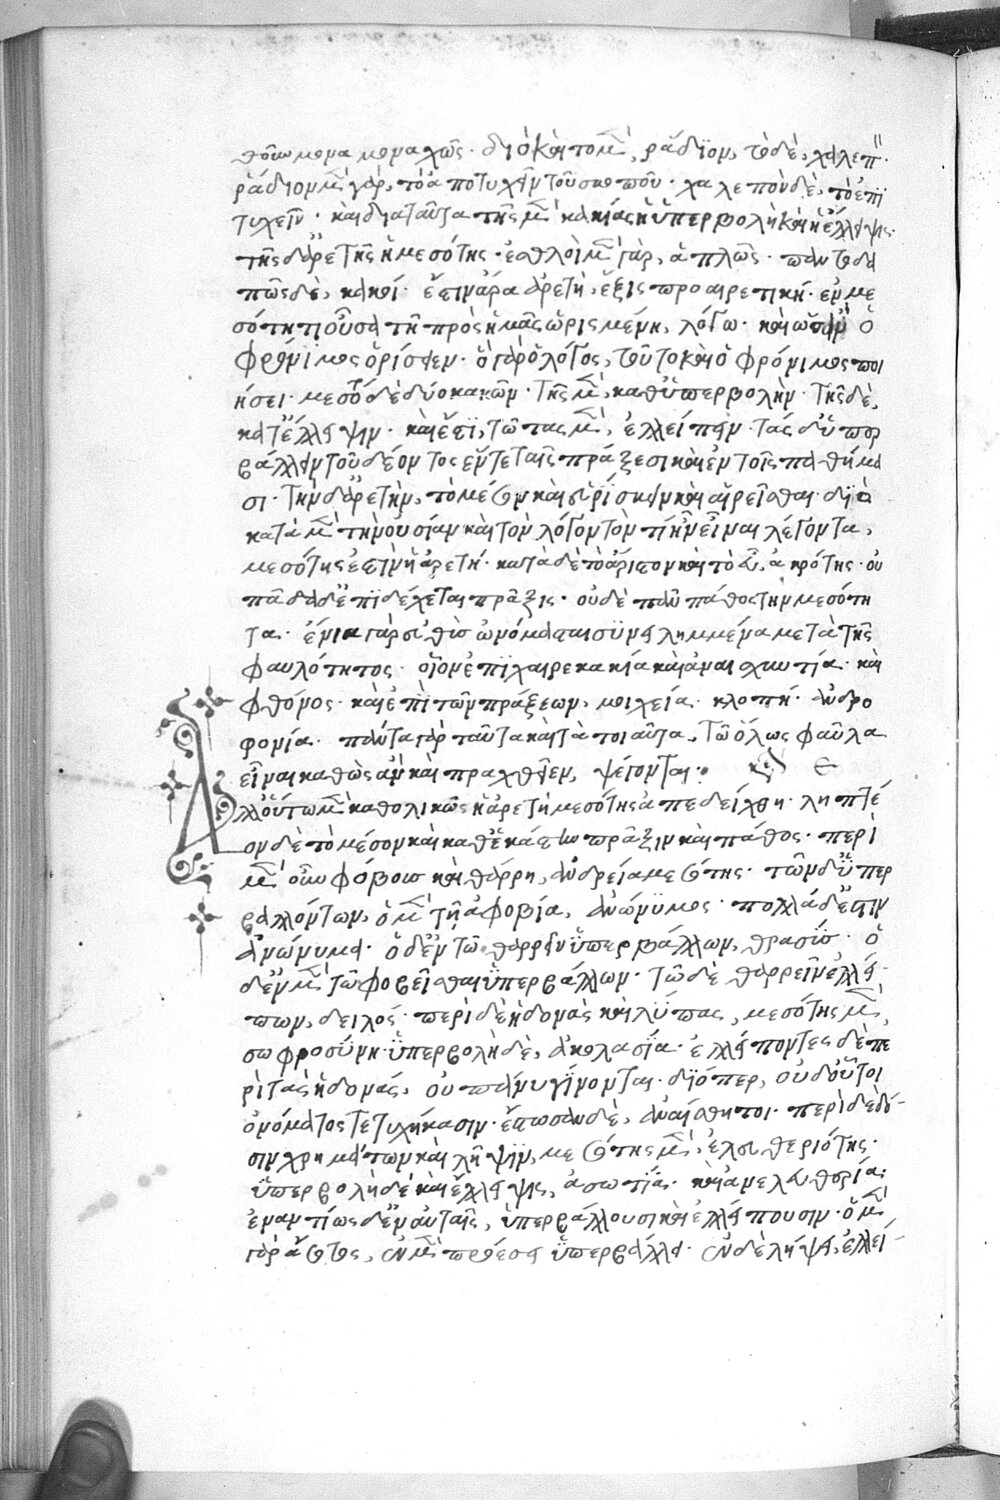 θοῦν μοναχῶς· διὸ καὶ τὸ μὲν, ῥάδιον, τὸ δὲ, χαλεπὸν·
ῥάδιον μὲν γὰρ, τὸ ἀποτυχεῖν τοῦ σκοποῦ· χαλεπὸν δὲ, τὸ ἐπι
τυχεῖν· καὶ διὰ ταῦτα τῆς μὲν κακίας ἡ ὑπερβολὴ καὶ ἡ ἔλλειψις·
τῆς δ' ἀρετῆς ἡ μεσότης· ἐσθλοὶ μὲν γὰρ, ἁπλῶς· παντοδα
πῶς δὲ, κακοί· ἔστιν ἄρα ἀρετὴ, ἕξις προαιρετική· ἐν με
σότητι οὖσα τῇ πρὸς ἡμᾶς ὡρισμένη, λόγω· καὶ ὡς ἂν ὁ
φρόνιμος ὁρίσειεν· ὃ γὰρ ὁ λόγος, τοῦτο καὶ ὁ φρόνιμος ποι
ήσει· μεσότης δὲ δύο κακῶν· τῆς μὲν, καθ' ὑπερβολὴν· τῆς δὲ,
κατ' ἔλλειψιν· καὶ ἔτι, τῶ τὰς μὲν, ἐλλείπειν· τὰς δ' ὑπερ
βάλλειν τοῦ δέοντος ἔν τε ταῖς πράξεσι καὶ ἐν τοῖς παθήμα
σι· τὴν δ' ἀρετὴν, τὸ μέσον καὶ εὑρίσκειν καὶ αἱρεῖσθαι· διὸ
κατὰ μὲν τὴν οὐσίαν καὶ τὸν λόγον τὸν τί ἦν εἶναι λέγοντα,
μεσότης ἐστὶν ἡ ἀρετή· κατὰ δὲ τὸ ἄριστον καὶ τὸ εὖ, ἀκρότης· οὐ
πᾶσα δ' ἐπιδέχεται πρᾶξις· οὐδὲ πᾶν πάθος τὴν μεσότη
τα· ἔνια γὰρ εὐθὺς ὠνόμασται συνειλημμένα μετὰ τῆς
φαυλότητος· οἷον ἐπιχαιρεκακία καὶ ἀναισχυντία· καὶ
φθόνος· καὶ ἐπὶ τῶν πράξεων, μοιχεία· κλοπή· ἀνδρο
φονία· πάντα γὰρ ταῦτα καὶ τὰ τοιαῦτα, τῶ ὅλως φαῦλα
εἶναι καθὼς ἂν καὶ πραχθεῖεν, ψέγονται·
Ἀλλ' οὕτω μὲν καθολικῶς ἡ ἀρετὴ μεσότης ἀπεδείχθη· ληπτέ
ον δὲ τὸ μέσον καὶ καθ' ἑκάστην πρᾶξιν καὶ πάθος· περὶ
μὲν οὖν φόβους καὶ θάρρη, ἀνδρεία μεσότης· τῶν δ' ὑπερ
βαλλόντων, ὁ μὲν τῆ ἀφοβία, ἀνώνυμος· πολλὰ δ' ἐστὶν
ἀνώνυμα· ὁ δ' ἐν τῶ θαρρεῖν ὑπερβάλλων, θρασύς· ὁ
δ' ἐν μὲν τῶ φοβεῖσθαι ὑπερβάλλων· τῶ δὲ θαρρεῖν ἐλλεί
πων, δειλός· περὶ δὲ ἡδονὰς καὶ λύπας, μεσότης μὲν,
σωφροσύνη· ὑπερβολὴ δὲ, ἀκολασία· ἐλλείποντες δὲ πε
ρὶ τὰς ἡδονάς, οὐ πάνυ γίνονται· διόπερ, οὐδ' οὗτοι
ὀνόματος τετυχήκασιν· ἔστωσαν δὲ, ἀναίσθητοι· περὶ δὲ δό-
σιν χρημάτων καὶ λῆψιν, μεσότης μὲν, ἐλευθεριότης·
ὑπερβολὴ δὲ καὶ ἔλλειψις, ἀσωτία· καὶ ἀνελευθερία·
ἐναντίως δ' ἐν αὐταῖς, ὑπερβάλλουσι καὶ ἐλλείπουσιν· ὁ μὲν
γὰρ ἄσωτος, ἐν μὲν προέσει ὑπερβάλλει· ἐν δὲ λήψει, ἐλλεί-